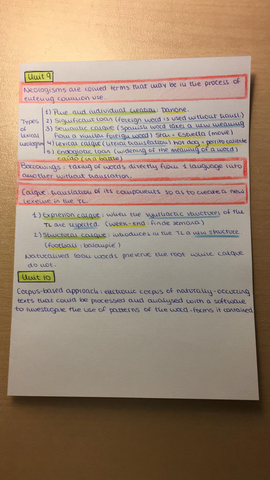 Unit 9
Neologisms are coined terms that may be in the process of
entering common use.
Types of lexical neologism
1) Pure and individual creation: Danone
2) Significant loan (foreign word is used without transl.)
3) Semantic calque (Spanish word takes a new meaning
from a similar foreign word) Star = Estrella (movie)
4) Lexical calque (literal translation) hot dog = perrito caliente
5) Endogenetic loan (widening of the meaning of a word)
caído (in a battle)
Borrowings: taking of words directly from 1 language into
another without translation.
Calque: translation of its components so as to create a new
lexeme in the TL.
1) Expression calque: when the syntactic structures of the
TL are respected. (week-end: fin de semana)
2) Structural calque: introduces in the TL a new structure
(football: balompié)
Naturalised loan words preserve the root while calque
do not.
Unit 10
Corpus-based approach: electronic corpus of naturally-occuring
texts that could be processed and analysed with a software
to investigate the use of patterns of the word-forms it contained